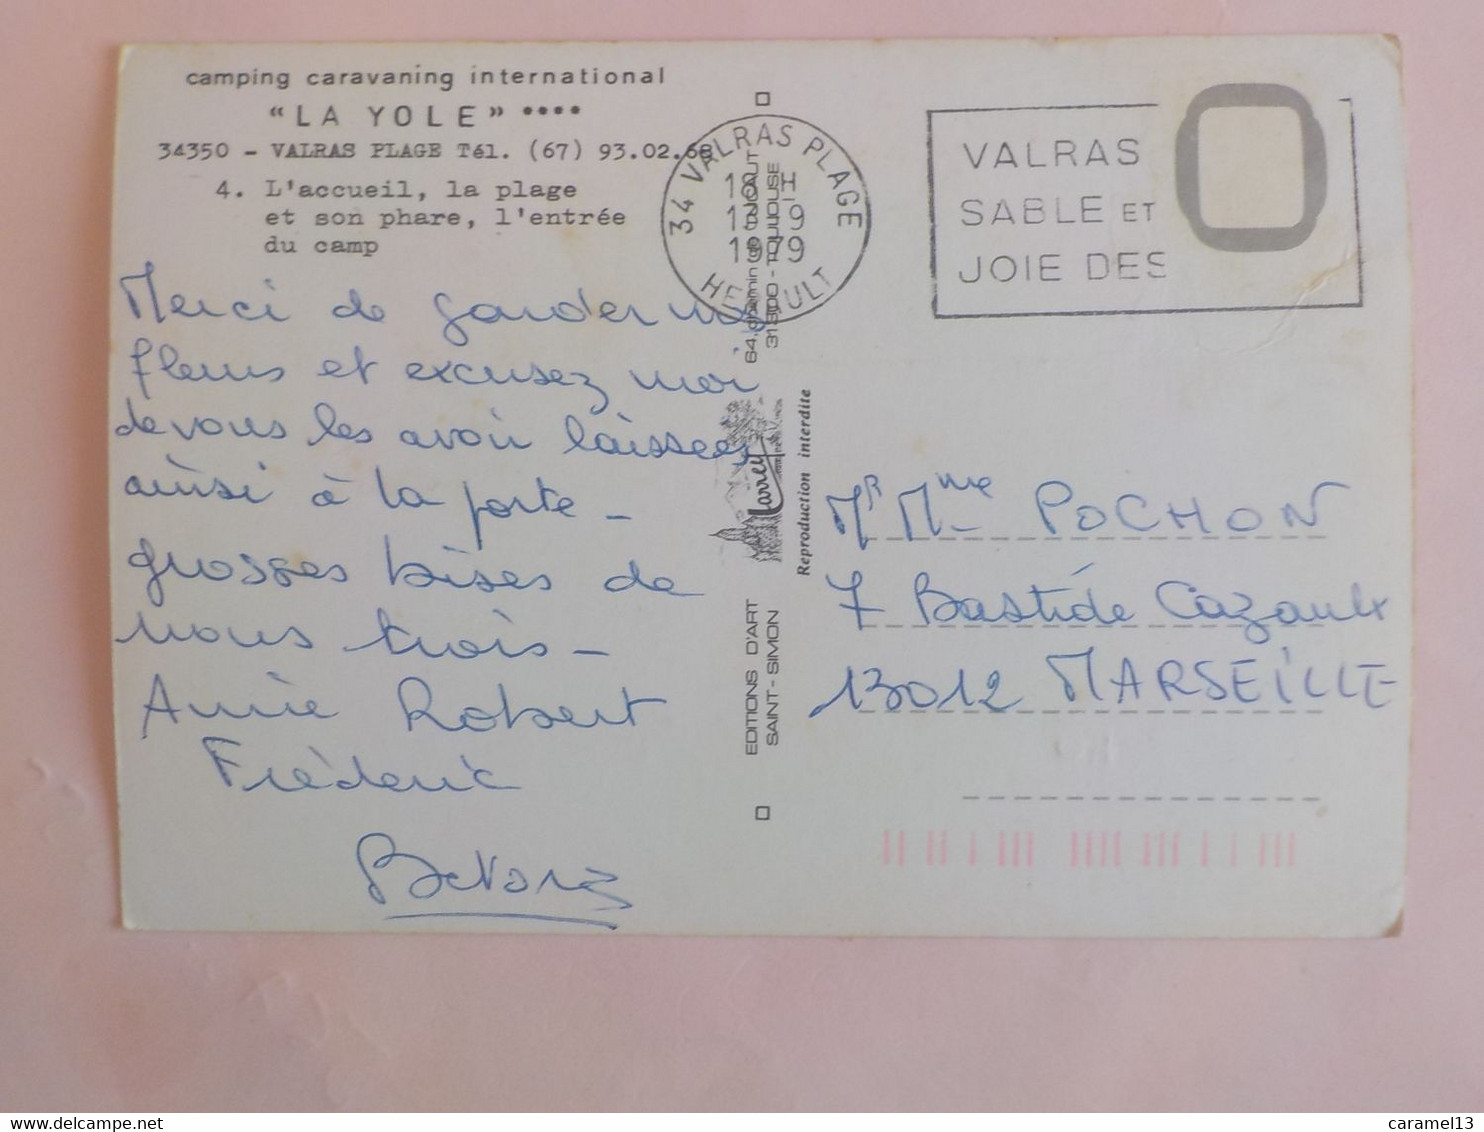 camping caravaning international
"LA YOLE" ••••
34350 - VALRAS PLAGE Tél. (67) 93.02.68
4. L'accueil, la plage
et son phare, l'entrée
du camp
Merci de garder nos
fleurs et excusez moi
de vous les avoir laissées
ainsi à la porte -
grosses bises de
nous trois -
Annie Robert
Fréderic
34 VALRAS PLAGE
19 H
13-9
1979
HERAULT
VALRAS
SABLE ET
JOIE DES
64, chemin
31300 - TOULOUSE
Larrey
Reproduction interdite
EDITIONS D'ART
SAINT-SIMON
Mr Mme POCHON
7 Bastide Cazaulx
13012 MARSEILLE
delcampe.net
caramel13